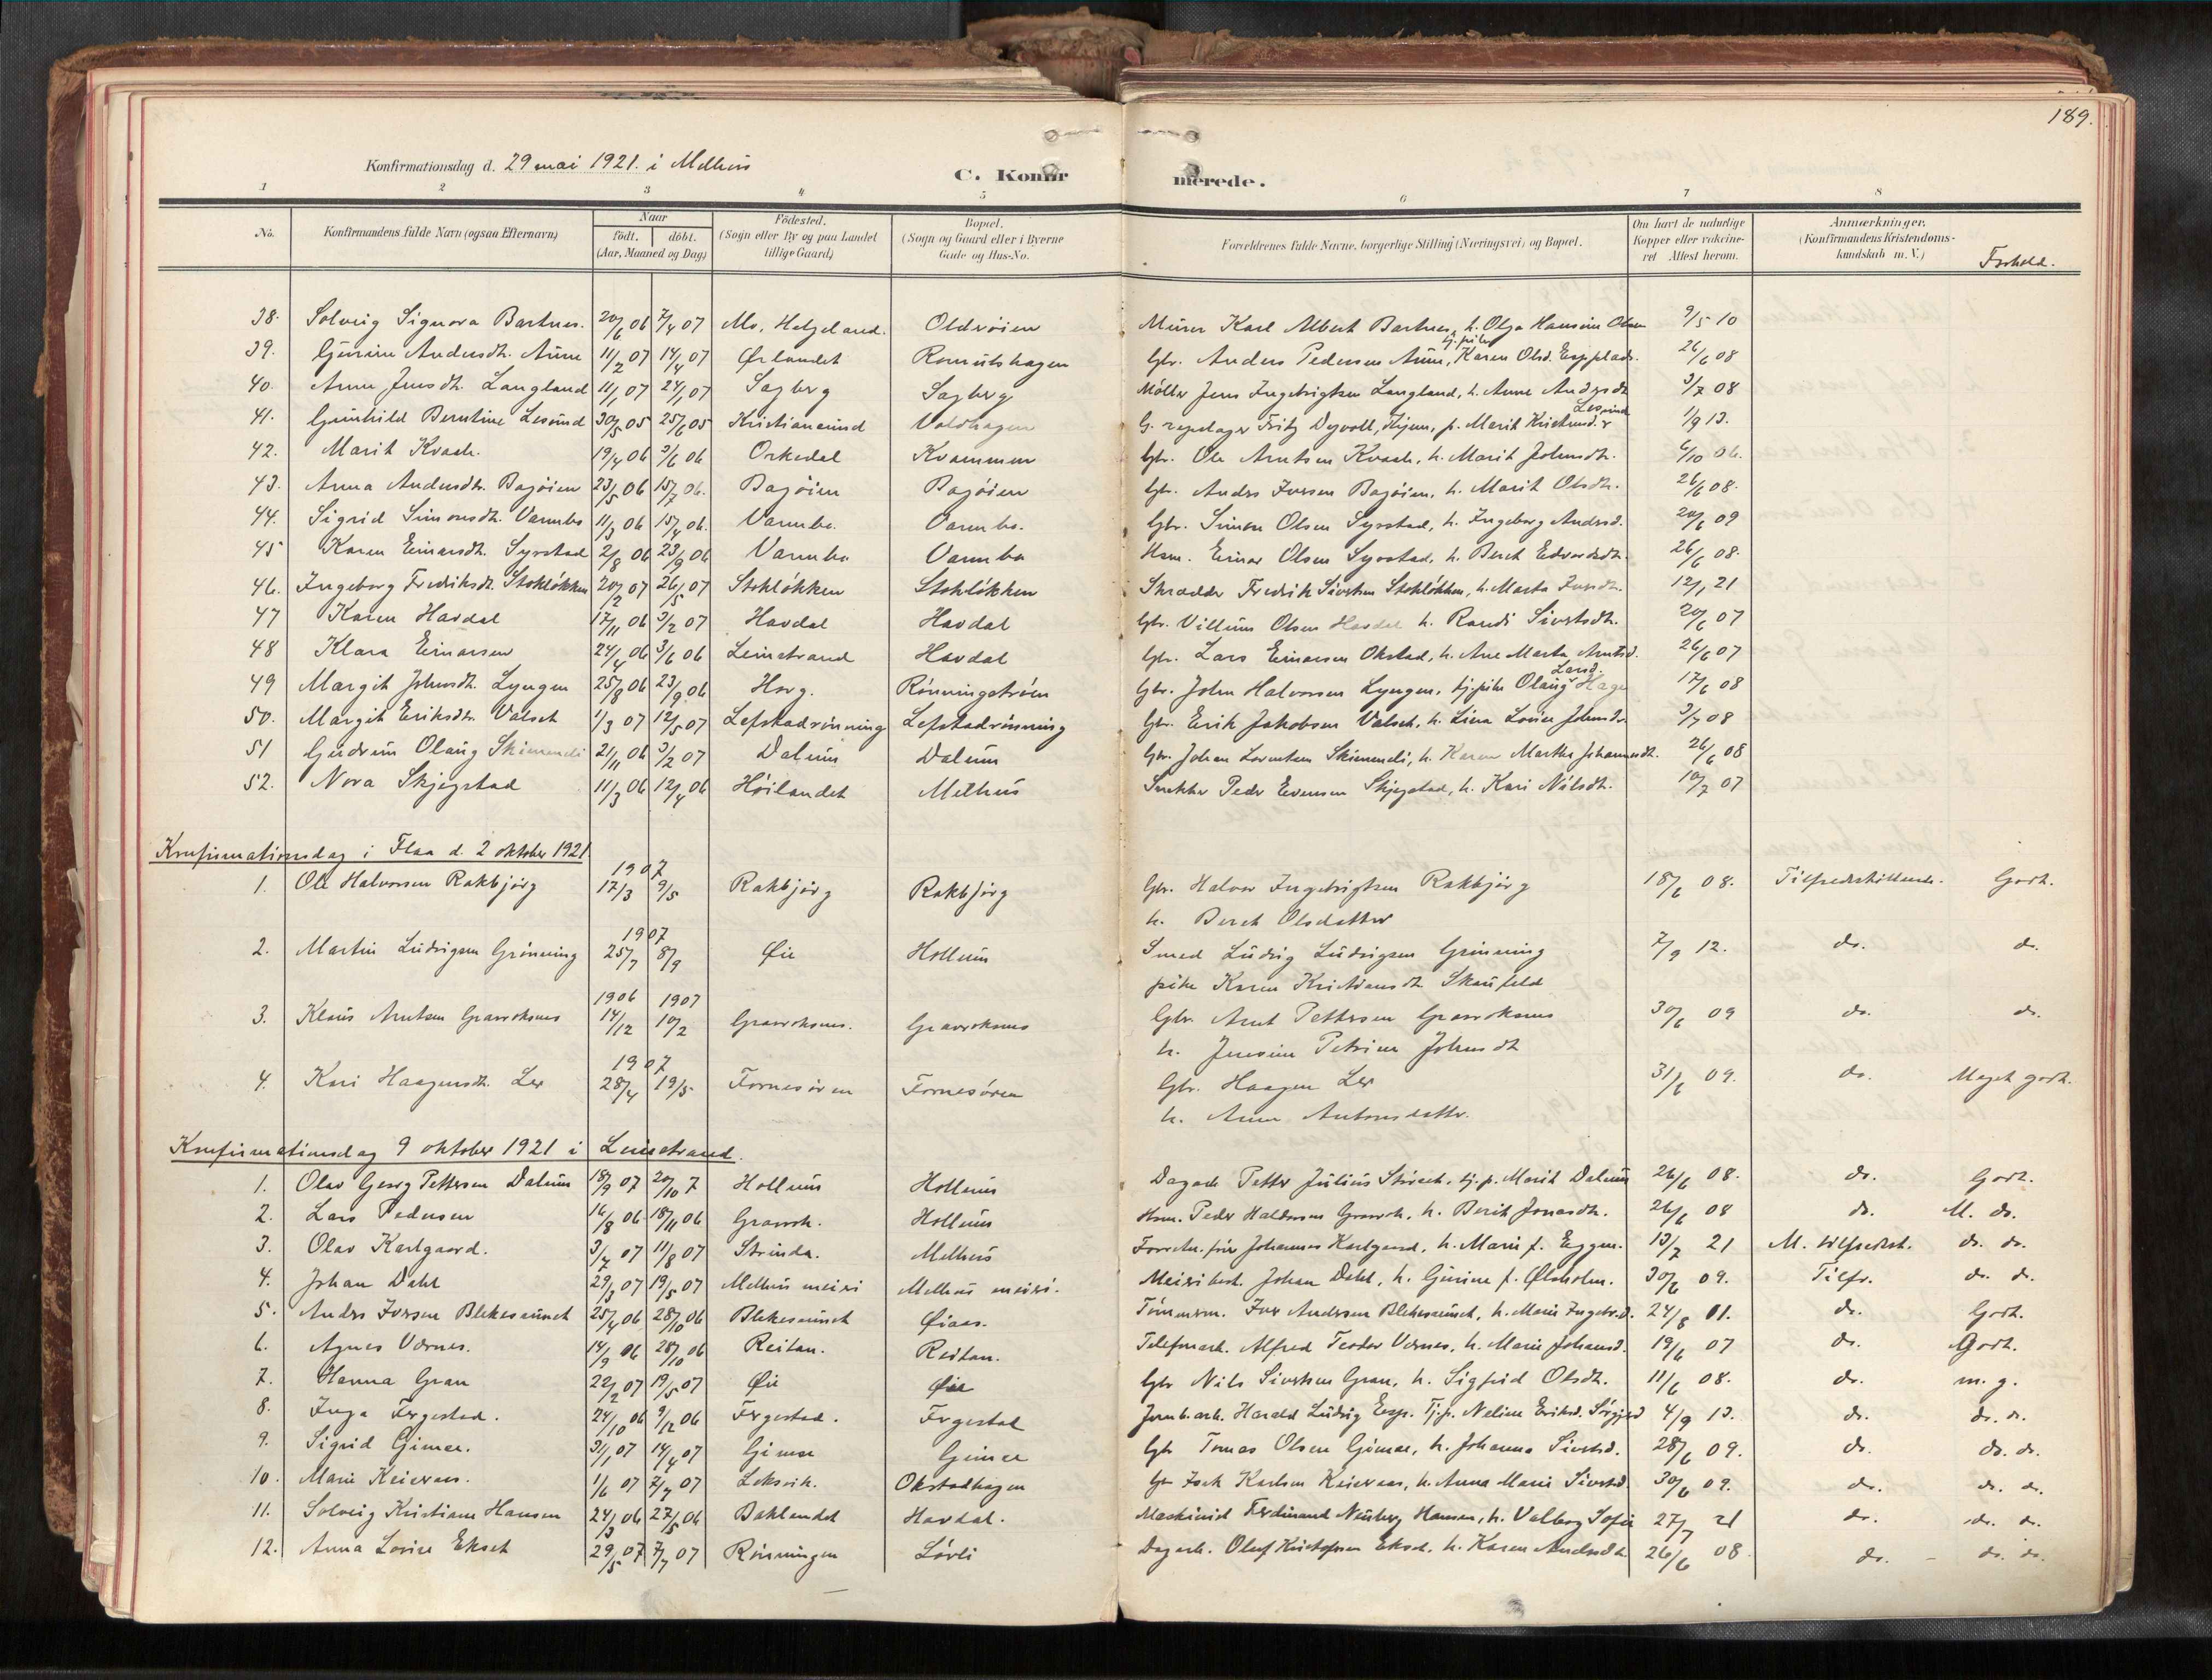 189.
Konfirmationsdag d. 29 mai 1921. i Melhus
C. Konfirmerede.
1 2 3 4 5 6 7 8
No. Konfirmandens fulde Navn (ogsaa Efternavn) Naar født. døbt. (Aar, Maaned og Dag) Födested. (Sogn eller By og paa Landet tillige Gaard) Bopæl. (Sogn og Gaard eller i Byerne Gade og Hus-No. Forældrenes fulde Navne, borgerlige Stilling (Næringsvei) og Bopæl. Om havt de naturlige Kopper eller vakcineret Attest herom. Anmærkninger. (Konfirmandens Kristendomskundskab m. V.) Forhold.
38. Solveig Signora Bartnes. 20/6 06 7/4 07 Mo, Helgeland. Oldrøien Murer Karl Albert Bartnes, h. Olga Hansine Olsen 9/5 10
39. Gjurine Andersdtr. Aune 11/2 07 14/4 07 Ørlandet Romulshagen Gbr. Anders Pedersen Aune, tj.pike Karen Olsd. 26/6 08
40. Anne Jensdtr. Langland 11/1 07 24/1 07 Sagberg Sagberg Møller Jens Ingebrigtsen Langland, h. Anne Andersdtr 3/7 08
41. Gunhild Berntine Lesund 30/5 05 25/6 05 Kristiansund Voldhagen G. repslager Fritz Dyvoll, Hjem, p. Marit Kristensd. Lesund 1/9 13.
42. Marit Kvaale. 19/4 06 3/6 06 Orkedal Kvammen Gbr. Ole Arntsen Kvaale, h. Marit Johnsdtr. 6/10 06.
43. Anna Andersdtr. Bagøien 23/5 06 15/7 06. Bagøien Bagøien Gbr. Anders Iversen Bagøien, h. Marit Olsdtr. 26/6 08.
44. Sigrid Simonsdtr. Varmbo 11/3 06 15/4 06. Varmbo. Varmbo. Gbr. Simon Olsen Syrstad, h. Ingeborg Andersd. 20/6 09
45 Karen Einarsdtr. Syrstad 2/8 06 23/9 06 Varmbo Varmbo Hsm. Einar Olsen Syrstad, h. Beret Edvardsdtr. 26/6 08.
46. Ingeborg Fredriksdtr. Stokløkken 20/2 07 26/5 07 Stokløkken Stokløkken Skrædder Fredrik Sivertsen Stokløkken, h. Marta 12/1 21
47 Karen Havdal 17/11 06 3/2 07 Havdal Havdal Gbr. Villum Olsen Havdal h. Randi Sivertsdtr. 20/6 07
48 Klara Einarsen 24/4 06 3/6 06 Leinstrand Havdal Gbr. Lars Einarsen Okstad, h. Ane Marta Arntsd. 26/6 07
49 Margit Johnsdtr. Lyngen 25/8 06 23/9 06 Horg. Rønningstrøen Gbr. John Halvorsen Lyngen, tj.pike Olaug Larsd. Hage 17/6 08
50. Margit Eriksdtr. Valset 1/3 07 12/5 07 Lefstadrønning Lefstadrønning Gbr. Erik Jakobsen Valset, h. Lina Lovise Johnsdr. 3/7 08
51 Gudrun Olaug Skinnendi 21/11 06 3/2 07 Dalum Dalum Gbr. Johan Lorentsen Skinnendi, h. Karen Martha Johannesdtr. 26/6 08
52. Nora Skjegstad 11/3 06 12/4 06 Høilandet Melhus Snekker Peder Evensen Skjegstad, h. Kari Nilsdtr. 10/7 07
Konfirmationsdag i Flaa d. 2 oktober 1921.
1907
1. Ole Halvorsen Rakbjørg 17/3 9/5 Rakbjørg Rakbjørg Gbr. Halvor Ingebrigtsen Rakbjørg 18/6 08. Tilfredsstillende. Godt.
h. Beret Olsdatter
1907
2. Martin Ludvigsen Grønning 25/7 8/9 Øie Hollum Smed Ludvig Ludvigsen Grønning 7/9 12. do. do.
pike Karen Kristiansdtr Skaufeld
1906 1907
3. Klaus Arntsen Gravroksnes 14/12 10/2 Gravroksnes. Gravroksnes Gbr. Arnt Pettersen Gravroksnes 30/6 09 do. do.
h. Jensine Petrine Johnsdtr
1907
4. Kari Haagensdtr. Ler 28/4 19/5 Fornesøren Fornesøren Gbr. Haagen Ler 31/6 09. do. Meget godt.
h. Anne Antonsdatter.
Konfirmationsdag 9 oktober 1921 i Leinstrand.
1. Olav Georg Pettersen Dalum 18/9 07 20/10 7 Hollum Hollum Dagarb. Petter Julius, tj. p. Marit Dalum 26/6 08. do. Godt.
2. Lars Pedersen 16/8 06 18/11 06 Gravrok. Hollum Hsm. Peder Haldorsen Gravrok, h. Berit Jonasdtr. 26/6 08 do. M. do.
3. Olav Karlgaard. 3/7 07 11/8 07 Strinda. Melhus Johannes Karlgaard, h. Marie f. Eggen. 13/7 21 M. tilfredsst. do. do.
4. Johan Dahl 29/3 07 19/5 07 Melhus meieri Melhus meieri. Meieribest. Johan Dahl, h. Gurine f. Ølsholm. 30/6 09. Tilfr. do. do.
5. Anders Iversen Blekesaunet 25/4 06 28/10 06 Blekesaunet Øiaas. Tømmerm. Iver Andersen Blekesaunet, h. Marie Ingebr.d. 24/8 01. do. Godt.
6. Agnes Værnes. 14/9 06 28/10 06 Reitan. Reitan. Telefonarb. Alfred Teodor Værnes, h. Marie Johansd. 19/6 07 do. Godt.
7. Hanna Gran 22/2 07 19/5 07 Øie Øie Gbr Nils Sivertsen Gran, h. Sigfrid Olsdtr. 11/6 08. do. m. g.
8. Inga Fergestad. 24/10 06 9/12 06 Fergestad. Fergestad Jernb.arb. Harald Ludvig Tj.p. Neline Eriksd. 4/9 13. do. do. do.
9. Sigrid Gimse. 31/1 07 14/4 07 Gimse Gimse Gbr Tomas Olsen Gimse, h. Johanna Sivertsd. 28/6 09. do. do. do.
10. Marie Keiseraas. 1/6 07 7/7 07 Leksvik. Okstadhagen Gbr Isak Karlsen Keiseraas, h. Anna Marie Sivertsd. 30/6 09. do. do. do.
11. Solveig Kristiane Hansen 24/3 06 27/5 06 Baklandet Havdal. Maskinist Ferdinand Hansen, h. Valborg Sofie 27/7 21 do. do. do.
12. Anna Lovise Ekset 29/5 07 7/7 07 Rønningen Løvli Dagarb. Oluf Kristofersen Ekset, h. Karen Andersdtr 26/6 08 do. - do. do.